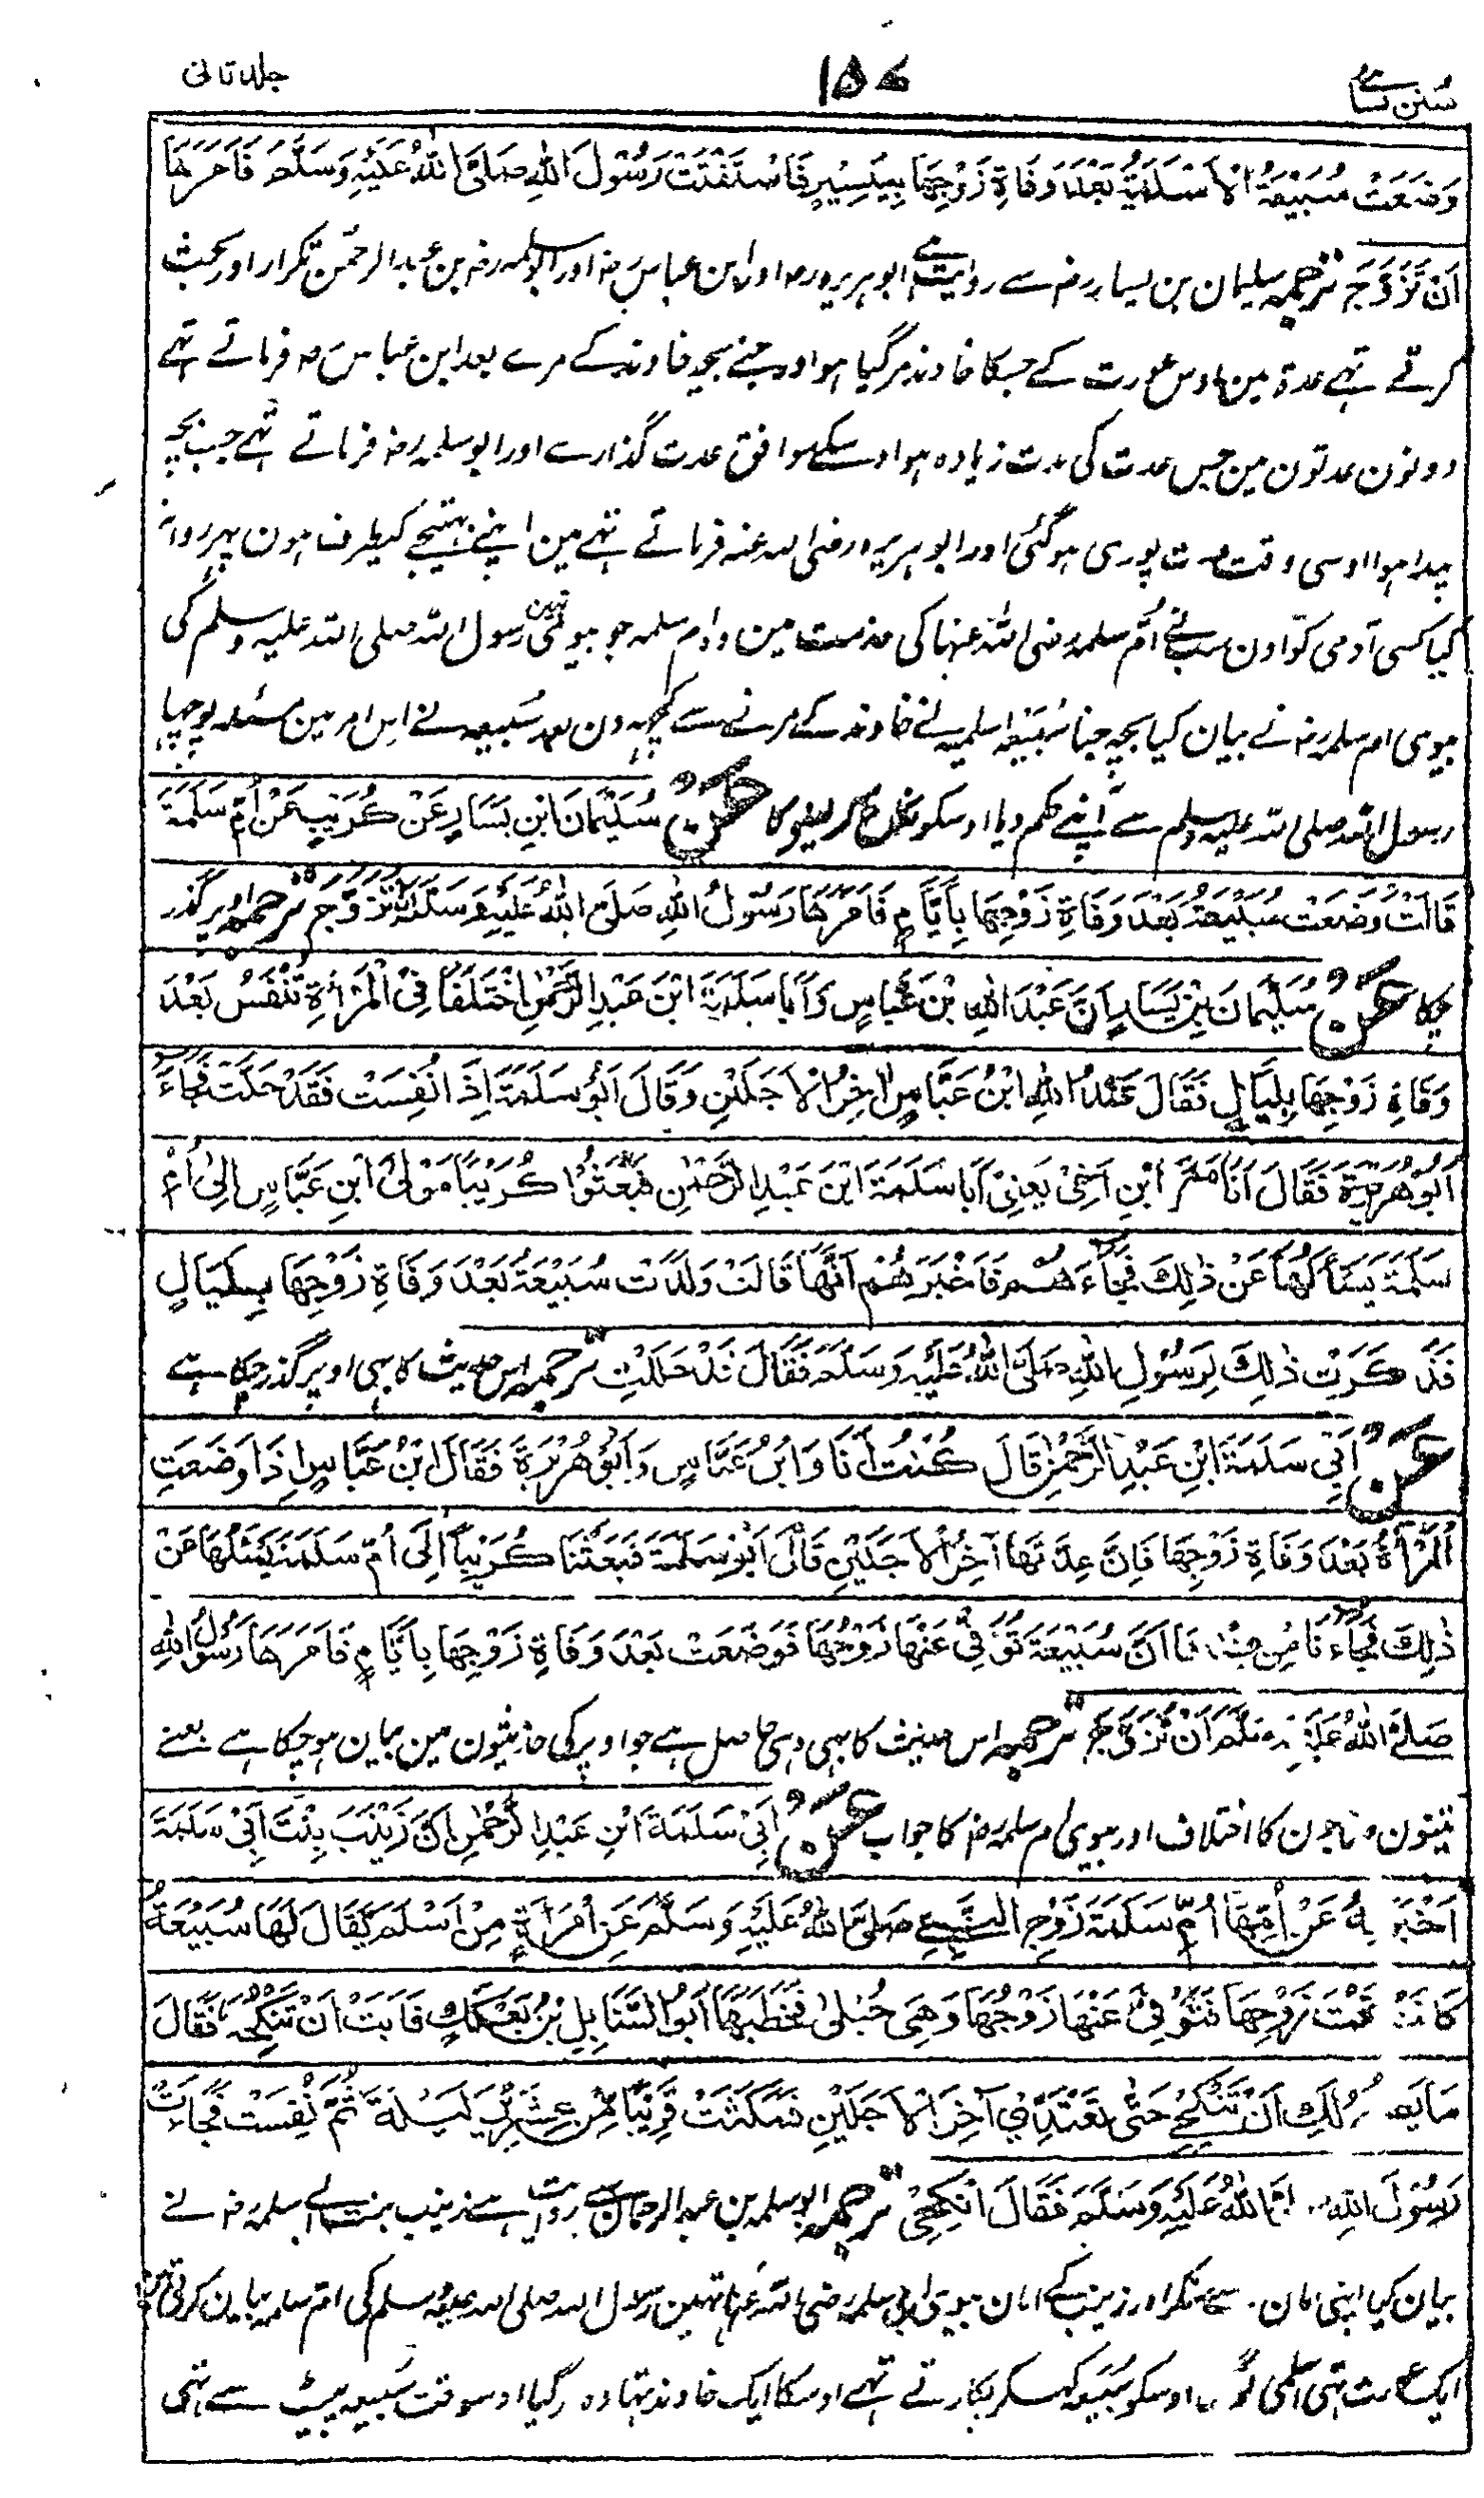 سُنن نسائے
۱۵۷
جلد ثانی
وَضَعَتْ سُبَيْعَةُ الْاَسْلَمِيَّةُ بَعْدَ وَفَاةِ زَوْجِهَا بِيَسِيْرٍ فَاسْتَفْتَتْ رَسُوْلَ اللهِ صَلَّى اللهُ عَلَيْهِ وَسَلَّمَ فَاَمَرَهَا
اَنْ تَزَوَّجَ ترجمہ سلیمان بن یسار رضہ سے روایت ہے ابوہریرہ رضہ اور ابن عباس رضہ اور ابوسلمہ رضہ بن عبدالرحمٰن تکرار اور بحث
کرتے تہے عدۃ مین اوس عورت کے جسکا خاوند مرگیا ہوا اور جنے بچہ خاوند کے مرے بعد ابن عباس رضہ فرماتے تہے
دونون عدتون مین جس عدت کی مدت زیادہ ہو اوسکے موافق عدت گذارے اور ابو سلمہ رضہ فرماتے تہے جب بچہ
پیدا ہوا اوسی وقت عدت پوری ہوگئی اور ابوہریرہ رضی اللہ عنہ فرماتے تہے مین اپنے بہتیجے کیطرف ہون پہر روانہ
کیا کسی آدمی کو اون سب نے اُم سلمہ رضی اللہ عنہا کی خدمت مین وام سلمہ جو بیوی تہین رسول اللہ صلی اللہ علیہ وسلم کی
بیوی ام سلمہ رضہ نے بیان کیا بچہ جنا سُبَیْعَہ اسلمیہ نے خاوند کے مرنے سے کچہہ دن بعد سُبیعہ نے اس امر مین مسئلہ پوچہا
رسول اللہ صلی اللہ علیہ وسلم سے آپنے حکم دیا اوسکو نکاح کر لینے کا عَنْ سُلَيْمَانَ ابْنِ يَسَارٍ عَنْ كُرَيْبٍ عَنْ اُمِّ سَلَمَةَ
قَالَتْ وَضَعَتْ سُبَيْعَةُ بَعْدَ وَفَاةِ زَوْجِهَا بِاَيَّامٍ فَاَمَرَهَا رَسُوْلُ اللهِ صَلَّى اللهُ عَلَيْهِ وَسَلَّمَ اَنْ تَزَوَّجَ ترجمہ اوپر گذر
چکا عَنْ سُلَيْمَانَ بْنِ يَسَارٍ اَنَّ عَبْدَ اللهِ بْنَ عَبَّاسٍ وَاَبَا سَلَمَةَ ابْنَ عَبْدِ الرَّحْمٰنِ اخْتَلَفَا فِى الْمَرْاَةِ تَنْفَسُ بَعْدَ
وَفَاةِ زَوْجِهَا بِلَيَالٍ فَقَالَ عَبْدُ اللهِ ابْنُ عَبَّاسٍ اٰخِرُ الْاَجَلَيْنِ وَقَالَ اَبُوْ سَلَمَةَ اِذَا نُفِسَتْ فَقَدْ حَلَّتْ فَجَاءَ
اَبُوْ هُرَيْرَةَ فَقَالَ اَنَا مَعَ ابْنِ اَخِىْ يَعْنِىْ اَبَا سَلَمَةَ ابْنَ عَبْدِ الرَّحْمٰنِ فَبَعَثُوْا كُرَيْبًا مَوْلَى ابْنِ عَبَّاسٍ اِلٰى اُمِّ
سَلَمَةَ يَسْاَلُهَا عَنْ ذٰلِكَ فَجَاءَهُمْ فَاَخْبَرَهُمْ اَنَّهَا قَالَتْ وَلَدَتْ سُبَيْعَةُ بَعْدَ وَفَاةِ زَوْجِهَا بِلَيَالٍ
فَذَكَرَتْ ذٰلِكَ لِرَسُوْلِ اللهِ صَلَّى اللهُ عَلَيْهِ وَسَلَّمَ فَقَالَ قَدْ حَلَلْتِ ترجمہ اس حدیث کا بہی اوپر گذر چکا ہے
عَنْ اَبِىْ سَلَمَةَ ابْنِ عَبْدِ الرَّحْمٰنِ قَالَ كُنْتُ اَنَا وَابْنُ عَبَّاسٍ وَاَبُوْ هُرَيْرَةَ فَقَالَ ابْنُ عَبَّاسٍ اِذَا وَضَعَتِ
الْمَرْاَةُ بَعْدَ وَفَاةِ زَوْجِهَا فَاِنَّ عِدَّتَهَا اٰخِرُ الْاَجَلَيْنِ قَالَ اَبُوْ سَلَمَةَ فَبَعَثْنَا كُرَيْبًا اِلٰى اُمِّ سَلَمَةَ يَسْئَلُهَا عَنْ
ذٰلِكَ فَجَاءَنَا مِنْ عِنْدِهَا اَنَّ سُبَيْعَةَ تُوُفِّىَ عَنْهَا زَوْجُهَا فَوَضَعَتْ بَعْدَ وَفَاةِ زَوْجِهَا بِاَيَّامٍ فَاَمَرَهَا رَسُوْلُ اللهِ
صَلَّى اللهُ عَلَيْهِ وَسَلَّمَ اَنْ تَزَوَّجَ ترجمہ اس حدیث کا بہی وہی حاصل ہے جو اوپر کی حدیثون مین بیان ہو چکا ہے یعنے
تینون صاحبون کا اختلاف اور بیوی ام سلمہ رضہ کا جواب عَنْ اَبِىْ سَلَمَةَ ابْنِ عَبْدِ الرَّحْمٰنِ اَنَّ زَيْنَبَ بِنْتَ اَبِىْ سَلَمَةَ
اَخْبَرَتْهُ عَنْ اُمِّهَا اُمِّ سَلَمَةَ زَوْجِ النَّبِيِّ صَلَّى اللهُ عَلَيْهِ وَسَلَّمَ عَنِ امْرَاَةٍ مِنْ اَسْلَمَ يُقَالُ لَهَا سُبَيْعَةُ
كَانَتْ تَحْتَ زَوْجِهَا فَتُوُفِّىَ عَنْهَا زَوْجُهَا وَهِىَ حُبْلٰى فَخَطَبَهَا اَبُو السَّنَابِلِ بْنُ بَعْكَكٍ فَاَبَتْ اَنْ تَنْكِحَهٗ فَقَالَ
مَا يَصْلُحُ لَكِ اَنْ تَنْكِحِىْ حَتّٰى تَعْتَدِّىْ اٰخِرَ الْاَجَلَيْنِ فَمَكَثَتْ قَرِيْبًا مِنْ عِشْرِيْنَ لَيْلَةً ثُمَّ نُفِسَتْ فَجَاءَتْ
رَسُوْلَ اللهِ صَلَّى اللهُ عَلَيْهِ وَسَلَّمَ فَقَالَ انْكِحِىْ ترجمہ ابوسلمہ بن عبدالرحمان سے روایت ہے زینب بنت ابی سلمہ رضہ نے
بیان کیا اپنی امان سے سنکر اور زینب کے امان بیوی ام سلمہ رضی اللہ عنہا تہین رسول اللہ صلی اللہ علیہ وسلم کی ام سلمہ بیان کرتی ہین
ایک عورت تہی اسلمی اوسکو سُبیعہ کہکر پکارتے تہے اوسکا ایک خاوند تہا وہ مرگیا اوسوقت سُبیعہ پیٹ سے تہی